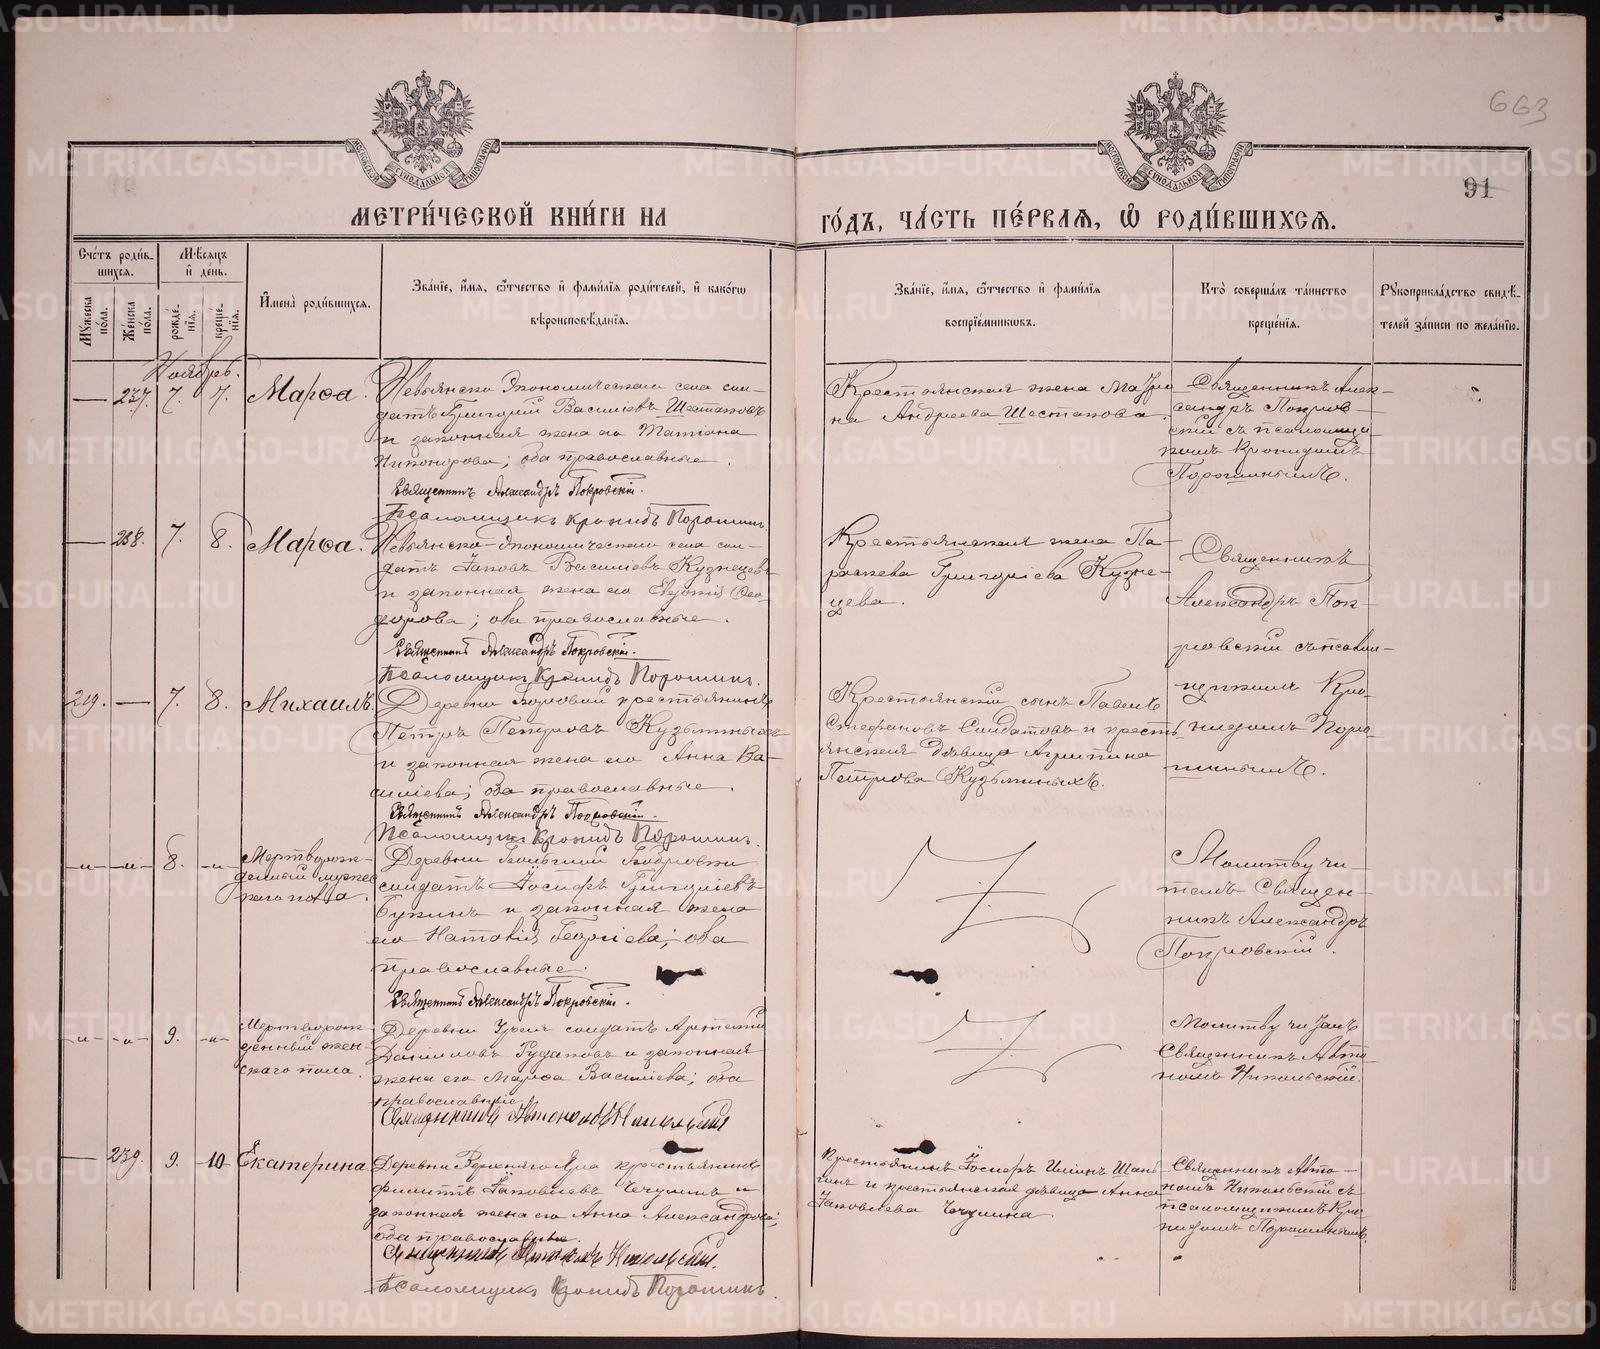 663
91
МЕТРИ́ЧЕСКОЙ КНИ́ГИ НА
ГО́ДЪ, ЧА́СТЬ ПЕ́РВАЯ, Ѡ҆ РОДИ́ВШИХСЯ.
Сче́тъ роди́в-
шихся.
Мѣсяцъ
и҆ де́нь.
Мꙋ́жеска по́ла.
Же́нска по́ла.
рожде́-нїя.
креще́-нїя.
И҆мена̀ роди́вшихся.
Зва́нїе, и҆́мя, ѻ҆́тчество и҆ фами́лїя роди́телей, и҆ како́гѡ
вѣроисповѣ́данїя.
Зва́нїе, и҆́мя, ѻ҆́тчество и҆ фами́лїя
воспрїе́мникѡвъ.
Кто̀ соверша́лъ та́инство
креще́нїя.
Рꙋкоприкла́дство свидѣ́-
телей за́писи по жела́нїю.
Ноябрь.
— 237. 7. 7. Марѳа.
Невьянско Экономическаго села сол-
датъ Григорій Василіевъ Шестаковъ
и законная жена его Татіана
Никонорова; оба православные.
Священникъ Александръ Покровскій.
Псаломщикъ Кронидъ Порошинъ.
Крестьянская жена Матро
на Андреева Шестакова.
Священникъ Алек-
сандръ Покров-
скій съ псаломщи
комъ Кронидомъ
Порошинымъ.
— 238. 7. 8. Марѳа.
Невьянско-Экономическаго села сол-
датъ Іаковъ Василіевъ Кузнецовъ
и законная жена его Евдокія Ѳео-
дорова; оба православные.
Священникъ Александръ Покровскій.
Псаломщикъ Кронидъ Порошинъ.
Крестьянская жена Па-
раскева Григоріева Кузне-
цева.
Священникъ
Александръ Пок-
ровскій съ псалом-
щикомъ Кро-
нидомъ Поро-
шинымъ.
219. — 7. 8. Михаилъ.
Деревни крестьянинъ
Петръ Петровъ Кузьминыхъ
и законная жена его Анна Ва-
силіева; оба православные.
Священникъ Александръ Покровскій.
Псаломщикъ Кронидъ Порошинъ.
Крестьянскій сынъ Павелъ
Стефановъ Солдатовъ и кресть
янская дѣвица Агрипина
Петрова Кузьминыхъ.
–„– –„– 8. –„– Мертворож-
денный мужес
каго пола.
Деревни Бобровки
солдатъ Іосифъ Григоріевъ
Букинъ и законная жена
его Наталія Георгіева; оба
православные.
Священникъ Александръ Покровскій.
Молитву чи
талъ Священ-
никъ Александръ
Покровскій.
–„– –„– 9. –„– Мертворож-
денный жен-
скаго пола.
Деревни солдатъ Артемій
Даниловъ Рудаковъ и законная
жена его Марѳа Василіева; оба
православные
Священникъ Автономъ Никольскій
Молитву читалъ
Священникъ Авто-
номъ Никольскій.
— 239. 9. 10 Екатерина
Деревни крестьянинъ
Филиппъ Іаковлевъ Чечулинъ и
законная жена его Анна Александрова;
оба православные.
Священникъ Автономъ Никольскій.
Псаломщикъ Кронидъ Порошинъ.
Крестьянинъ Іосифъ
и крестьянская дѣвица Анна
Іаковлева Чечулина
Священникъ Авто-
номъ Никольскій съ
псаломщикомъ Кро-
нидомъ Порошинымъ.
METRIKI.GASO-URAL.RU